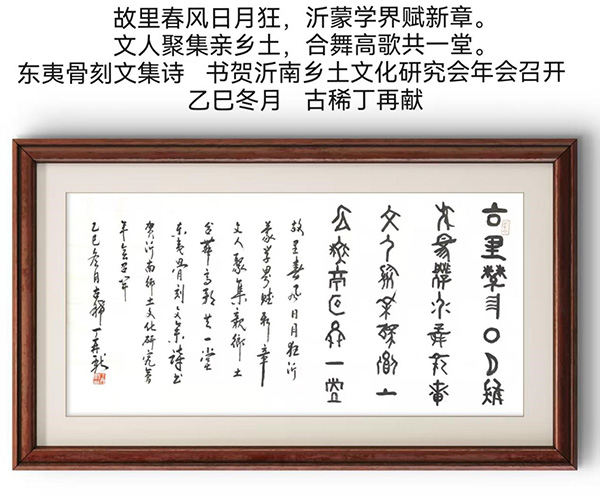 故里春风日月狂，沂蒙学界赋新章。
文人聚集亲乡土，合舞高歌共一堂。
东夷骨刻文集诗 书贺沂南乡土文化研究会年会召开
乙巳冬月 古稀丁再献
故里春风日月狂
沂蒙学界赋新章
文人聚集亲乡土
合舞高歌共一堂
故里春风日月狂沂
蒙学界赋新章
文人聚集親鄉土
合舞高歌共一堂
东夷骨刻文集诗书
贺沂南乡土文化研究会
年会召开
乙巳冬月古稀丁再献